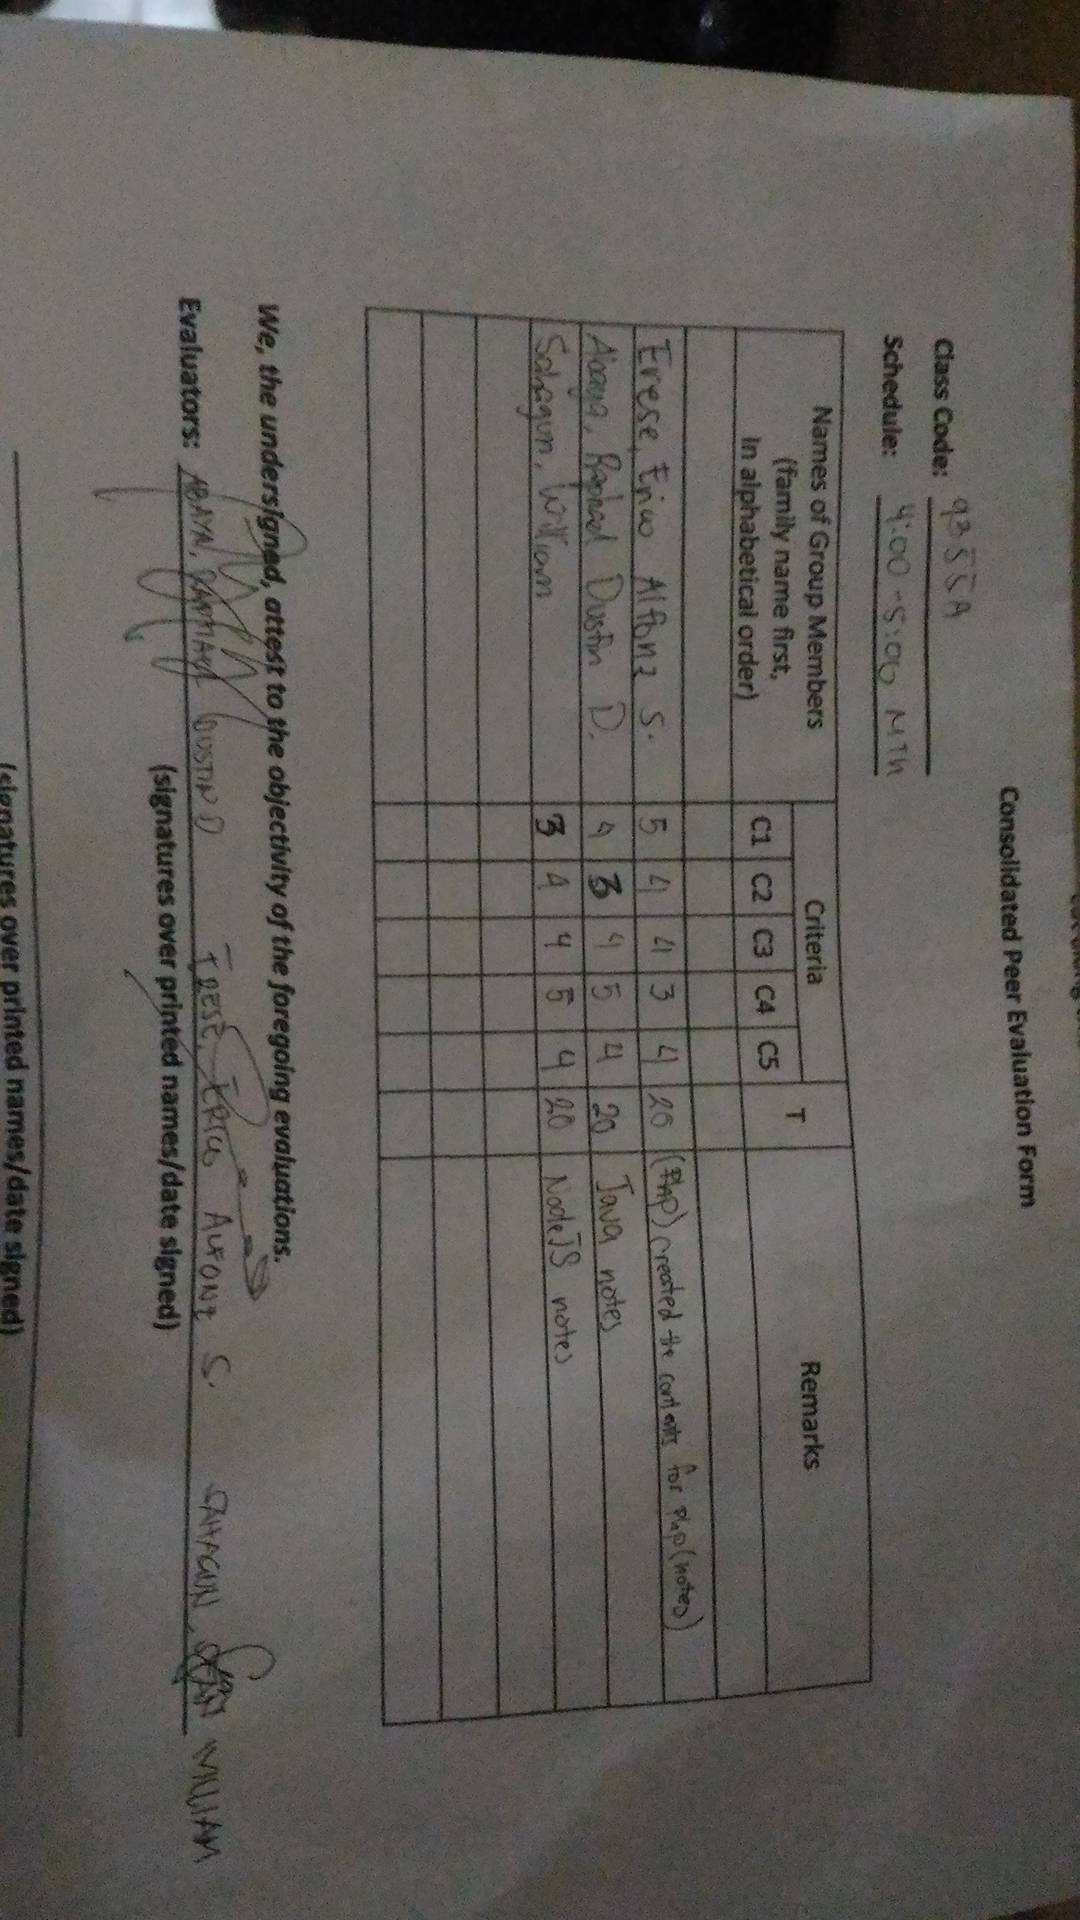 Consolidated Peer Evaluation Form
Class Code: 9355A
Schedule: 4:00 - 5:00 MTh
Names of Group Members
(family name first,
in alphabetical order)
Criteria
C1 C2 C3 C4 C5
T
Remarks
Erese, Erico Alfonz S. 5 4 4 3 4 20 (Php) created the contents for Php (notes)
Abaya, Raphael Dustin D. 4 3 4 5 4 20 Java notes
Sahagun, William 3 4 4 5 4 20 NodeJS notes
We, the undersigned, attest to the objectivity of the foregoing evaluations.
Evaluators: ABAYA, RAPHAEL DUSTIN D ERESE, ERICO ALFONZ S. SAHAGUN, SEAN WILLIAM
(signatures over printed names/date signed)
(signatures over printed names/date signed)